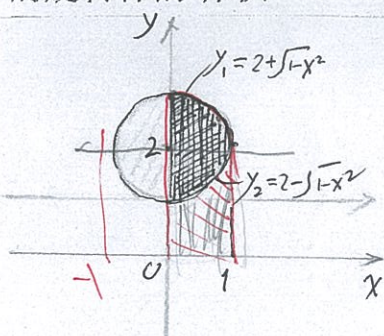 y
y₁=2+√1-x²
2
y₂=2-√1-x²
-1 0 1 x